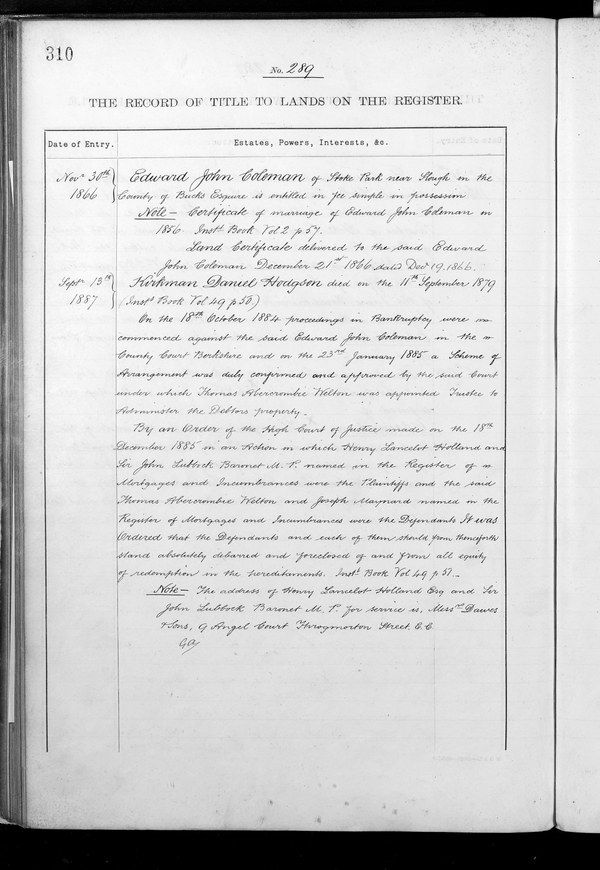 310
No. 289
THE RECORD OF TITLE TO LANDS ON THE REGISTER.
Date of Entry.
Estates, Powers, Interests, &c.
Novr 30th 1866
Edward John Coleman of Stoke Park near Slough in the
County of Bucks Esquire is entitled in fee simple in possession
Note – Certificate of marriage of Edward John Coleman in
1856. Instt Book Vol 2 p 57.
Land Certificate delivered to the said Edward
John Coleman December 21st 1866 dated Decr 19. 1866.
Septr 13th 1887
Kirkman Daniel Hodgson died on the 11th September 1879
(Instt Book Vol 49 p 56)
On the 18th October 1884 proceedings in Bankruptcy were
commenced against the said Edward John Coleman in the
County Court Berkshire and on the 23rd January 1885 a Scheme of
Arrangement was duly confirmed and approved by the said Court
under which Thomas Abercrombie Welton was appointed Trustee to
Administer the Debtors property.
By an Order of the High Court of Justice made on the 18th
December 1885 in an Action in which Henry Lancelot Holland and
Sir John Lubbock Baronet M. P. named in the Register of
Mortgages and Incumbrances were the Plaintiffs and the said
Thomas Abercrombie Welton and Joseph Maynard named in the
Register of Mortgages and Incumbrances were the Defendants It was
Ordered that the Defendants and each of them should from thenceforth
stand absolutely debarred and foreclosed of and from all equity
of redemption in the hereditaments. Instt Book Vol 49 p 57 –
Note – The address of Henry Lancelot Holland Esq and Sir
John Lubbock Baronet M. P. for service is, Messrs Dawes
& Sons, 9 Angel Court Throgmorton Street. E. C.